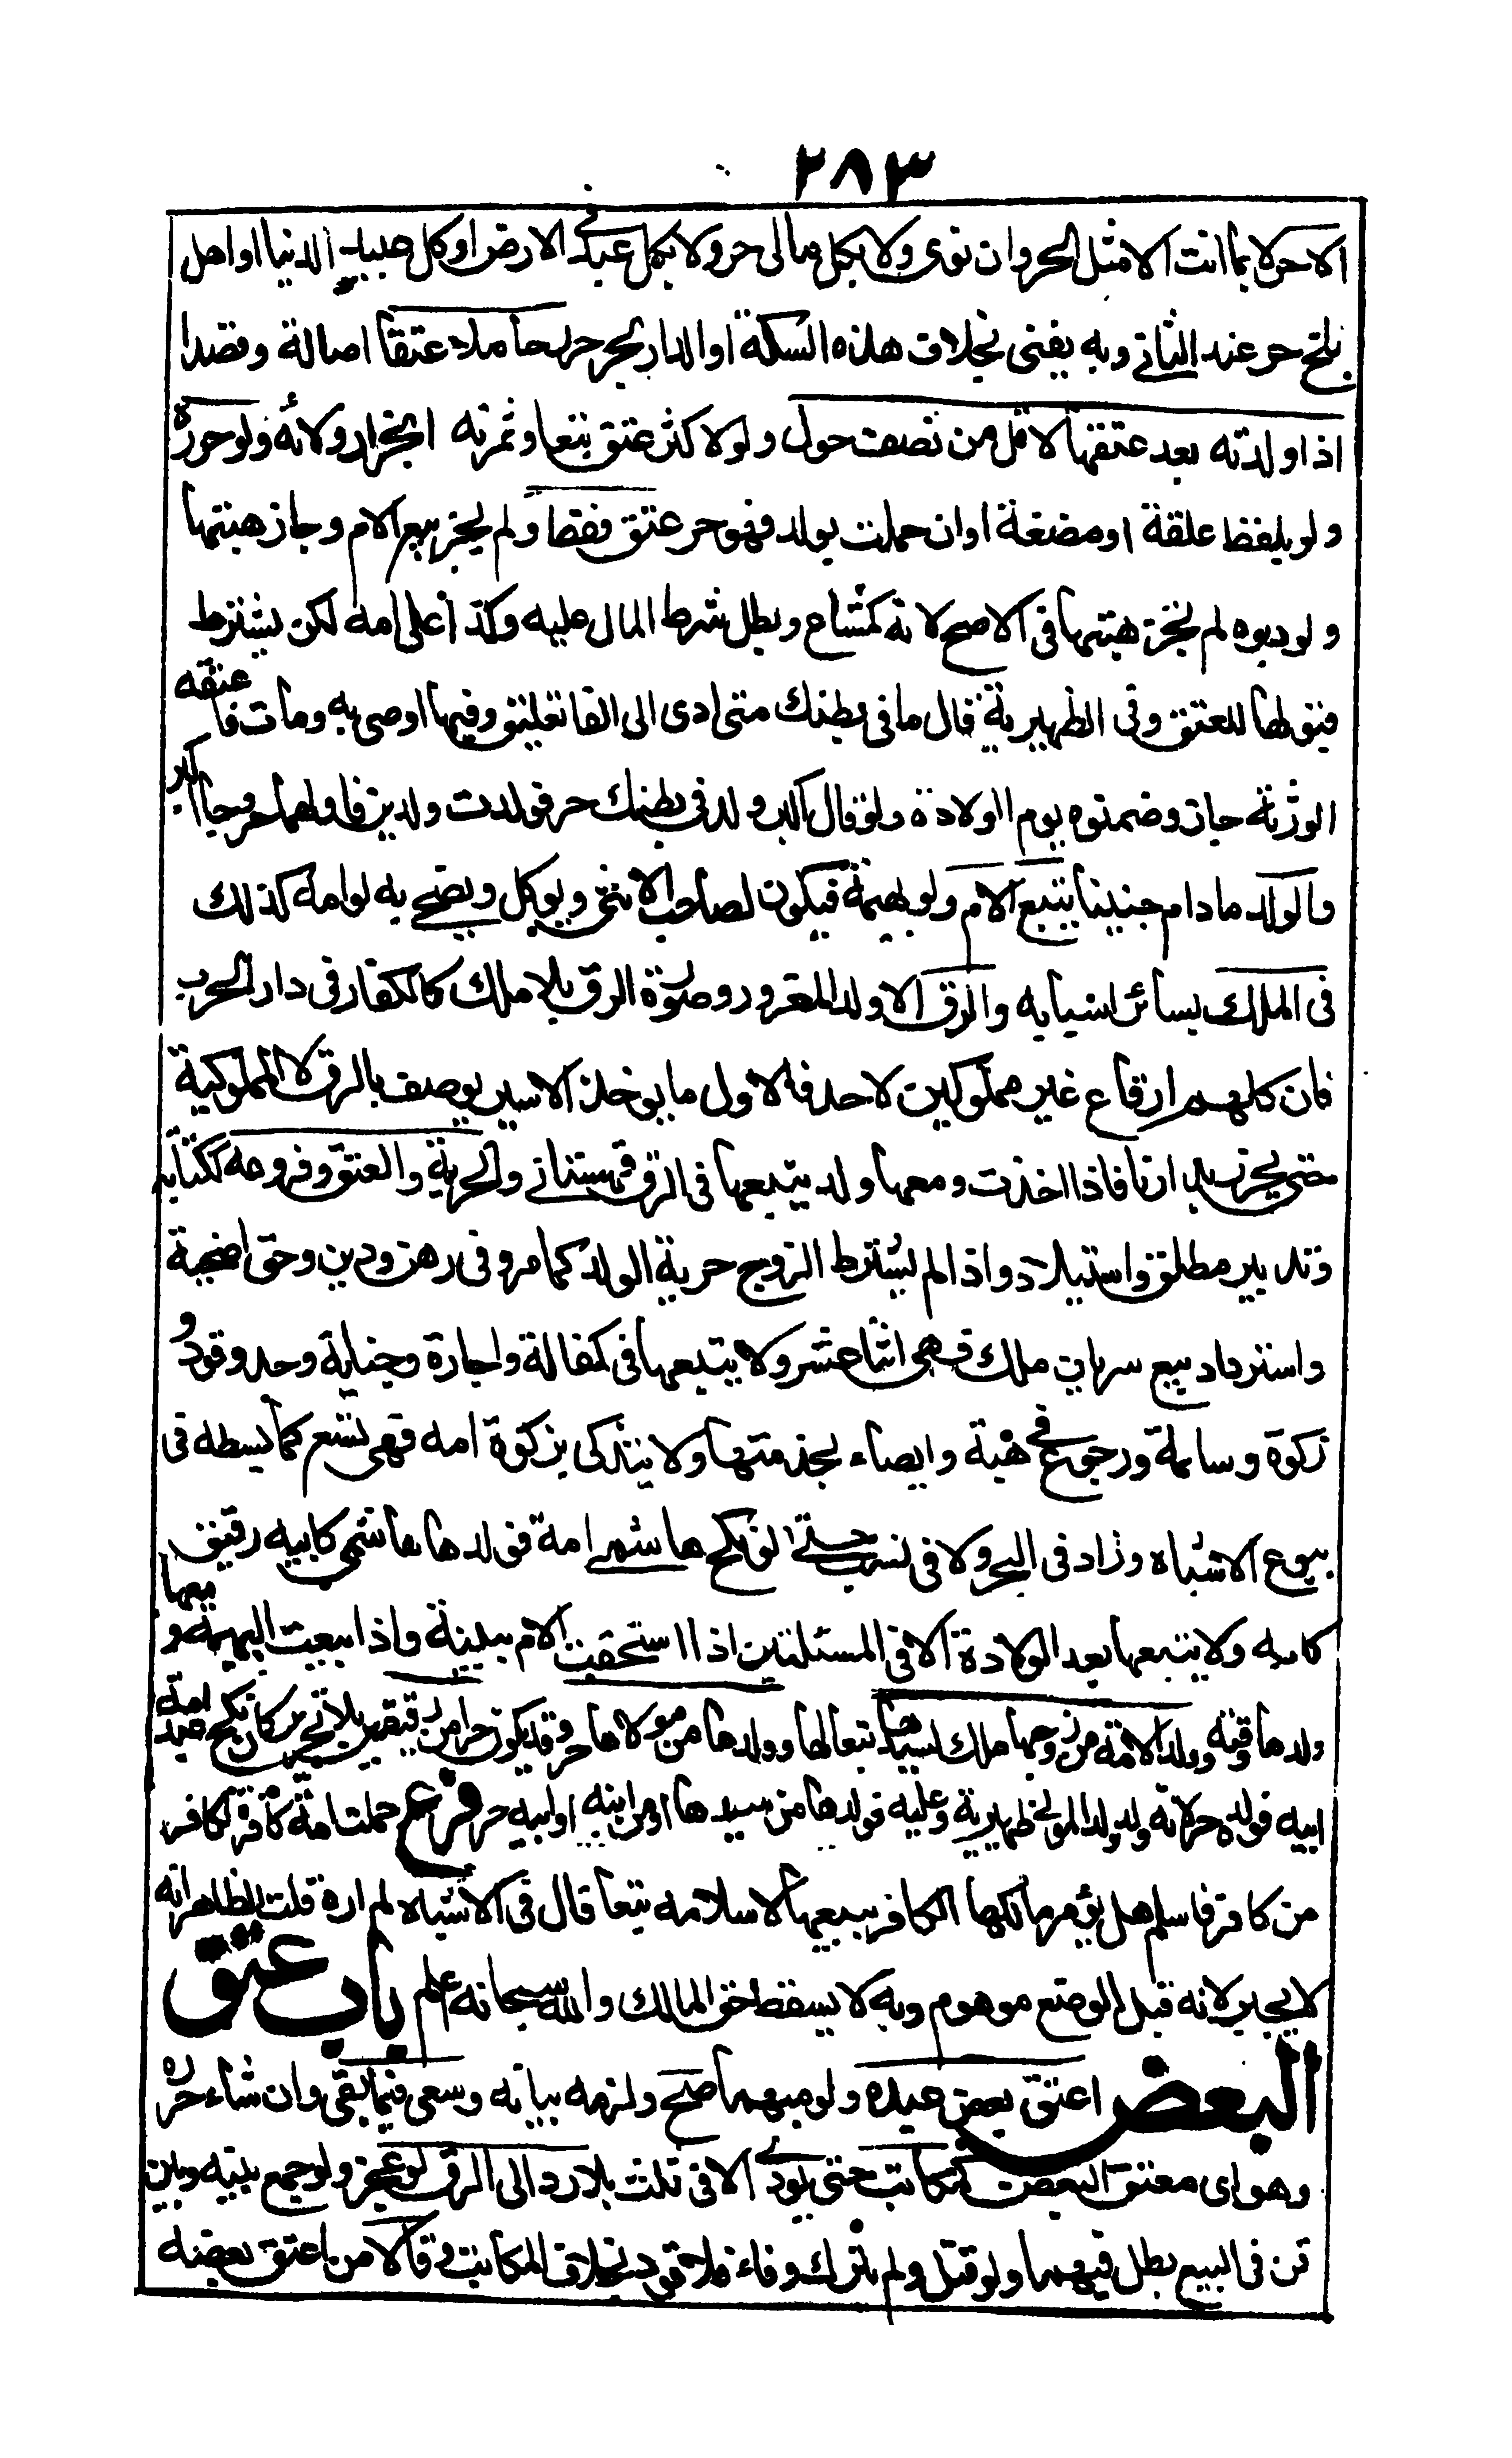 ٢٨٣
الا حر لا بما انت الا مثل الحر وان نوى ولا بكل مالى حر ولا بكل عبد فى الارض او كل عبيد الدنيا او اهل
بلخ حر عند الثانى وبه يفتى بخلاف هذه السكة او الدار بحر حرر حاملا عتقا اصالة وقصدا
اذا ولدته بعد عتقها لاقل من نصف حول ولو لاكثر عتق تبعا وثمرته انجرار ولائه ولو حرره
ولو بلفظ علقة او مضغة او ان حملت بولد فهو حر عتق فقط ولم يجز بيع الام وجاز هبتها
ولو دبره لم تجز هبتها فى الاصح لانه كمشاع وبطل شرط المال عليه وكذا على امه لكن يشترط
قبولها للعتق وفى الظهيرية قال ما فى بطنك متى ادى الى الفا تعليق وفيها اوصى به ومات فاعتقه
الورثة جاز وضمنوه يوم الولادة ولو قال اكبر ولد فى بطنك حر فولدت ولدين فاولهما خروجا اكبر
والولد ما دام جنينا يتبع الام ولو بهيمة فيكون لصاحب الانثى ويوكل ويضحى به لو امه كذلك
فى الملك بسائر اسبابه والرق الا ولد المغرور وصورة الرق بلا ملك كالكفار فى دار الحرب
فان كلهم ارقاء غير مملوكين لاحد فاول ما يوخذ الاسير يوصف بالرق لا المملوكية
حتى يحرز بدارنا فاذا اخذت ومعها ولد يتبعها فى الرق قهستانى والحرية والعتق وفروعه ككتابة
وتدبير مطلق واستيلاد اذا لم يشترط الزوج حرية الولد كما مر وفى رهن ودين وحق اضحية
واسترداد بيع وسريان ملك فهى اثنا عشر ولا يتبعها فى كفالة واجارة وجناية وحد وقود و
زكوة وسائمة ورجوع فى هبة وايصاء بخدمتها ولا يتذكى بزكوة امه فهى تسع كما بسطه فى
بيوع الاشباه وزاد فى البحر ولا فى نسب حتى لو نكح هاشمى امة فولدها هاشمى كابيه رقيق
كامه ولا يتبعها بعد الولادة الا فى المسئلتين اذا استحقت الام ببينة واذا بيعت البهيمة ومعها
ولدها وقته وولد الامة من زوجها ملك لسيدها تبعا لها وولدها من مولاها حر وقد يكون حرا من رقيقين بلا تحرير كان نكح عبد امة
ابيه فولده حر لانه ولد ولد المولى ظهيرية وعليه فولدها من سيدها او من ابنه او ابيه حر فرع حملت امة كافرة لكافر
من كافر فاسلم هل يؤمر مالكها الكافر ببيعها لاسلامه تبعا قال فى الاشباه لم اره قلت الظاهر انه
لا يجبر لانه قبل الوضع موهوم وبه لا يسقط حق المالك والله سبحانه اعلم باب عتق
البعض اعتق بعض عبده ولو مبهما صح ولزمه بيانه وسعى فيما بقى وان شاء حرره
وهو اى معتق البعض كمكاتب حتى يودى الا فى ثلث بلا رد الى الرق لو عجز ولو جمع بينه وبين
قن فى البيع بطل فيهما ولو قتل ولم يترك وفاء فلا قود بخلاف المكاتب وقالا من اعتق بعضه